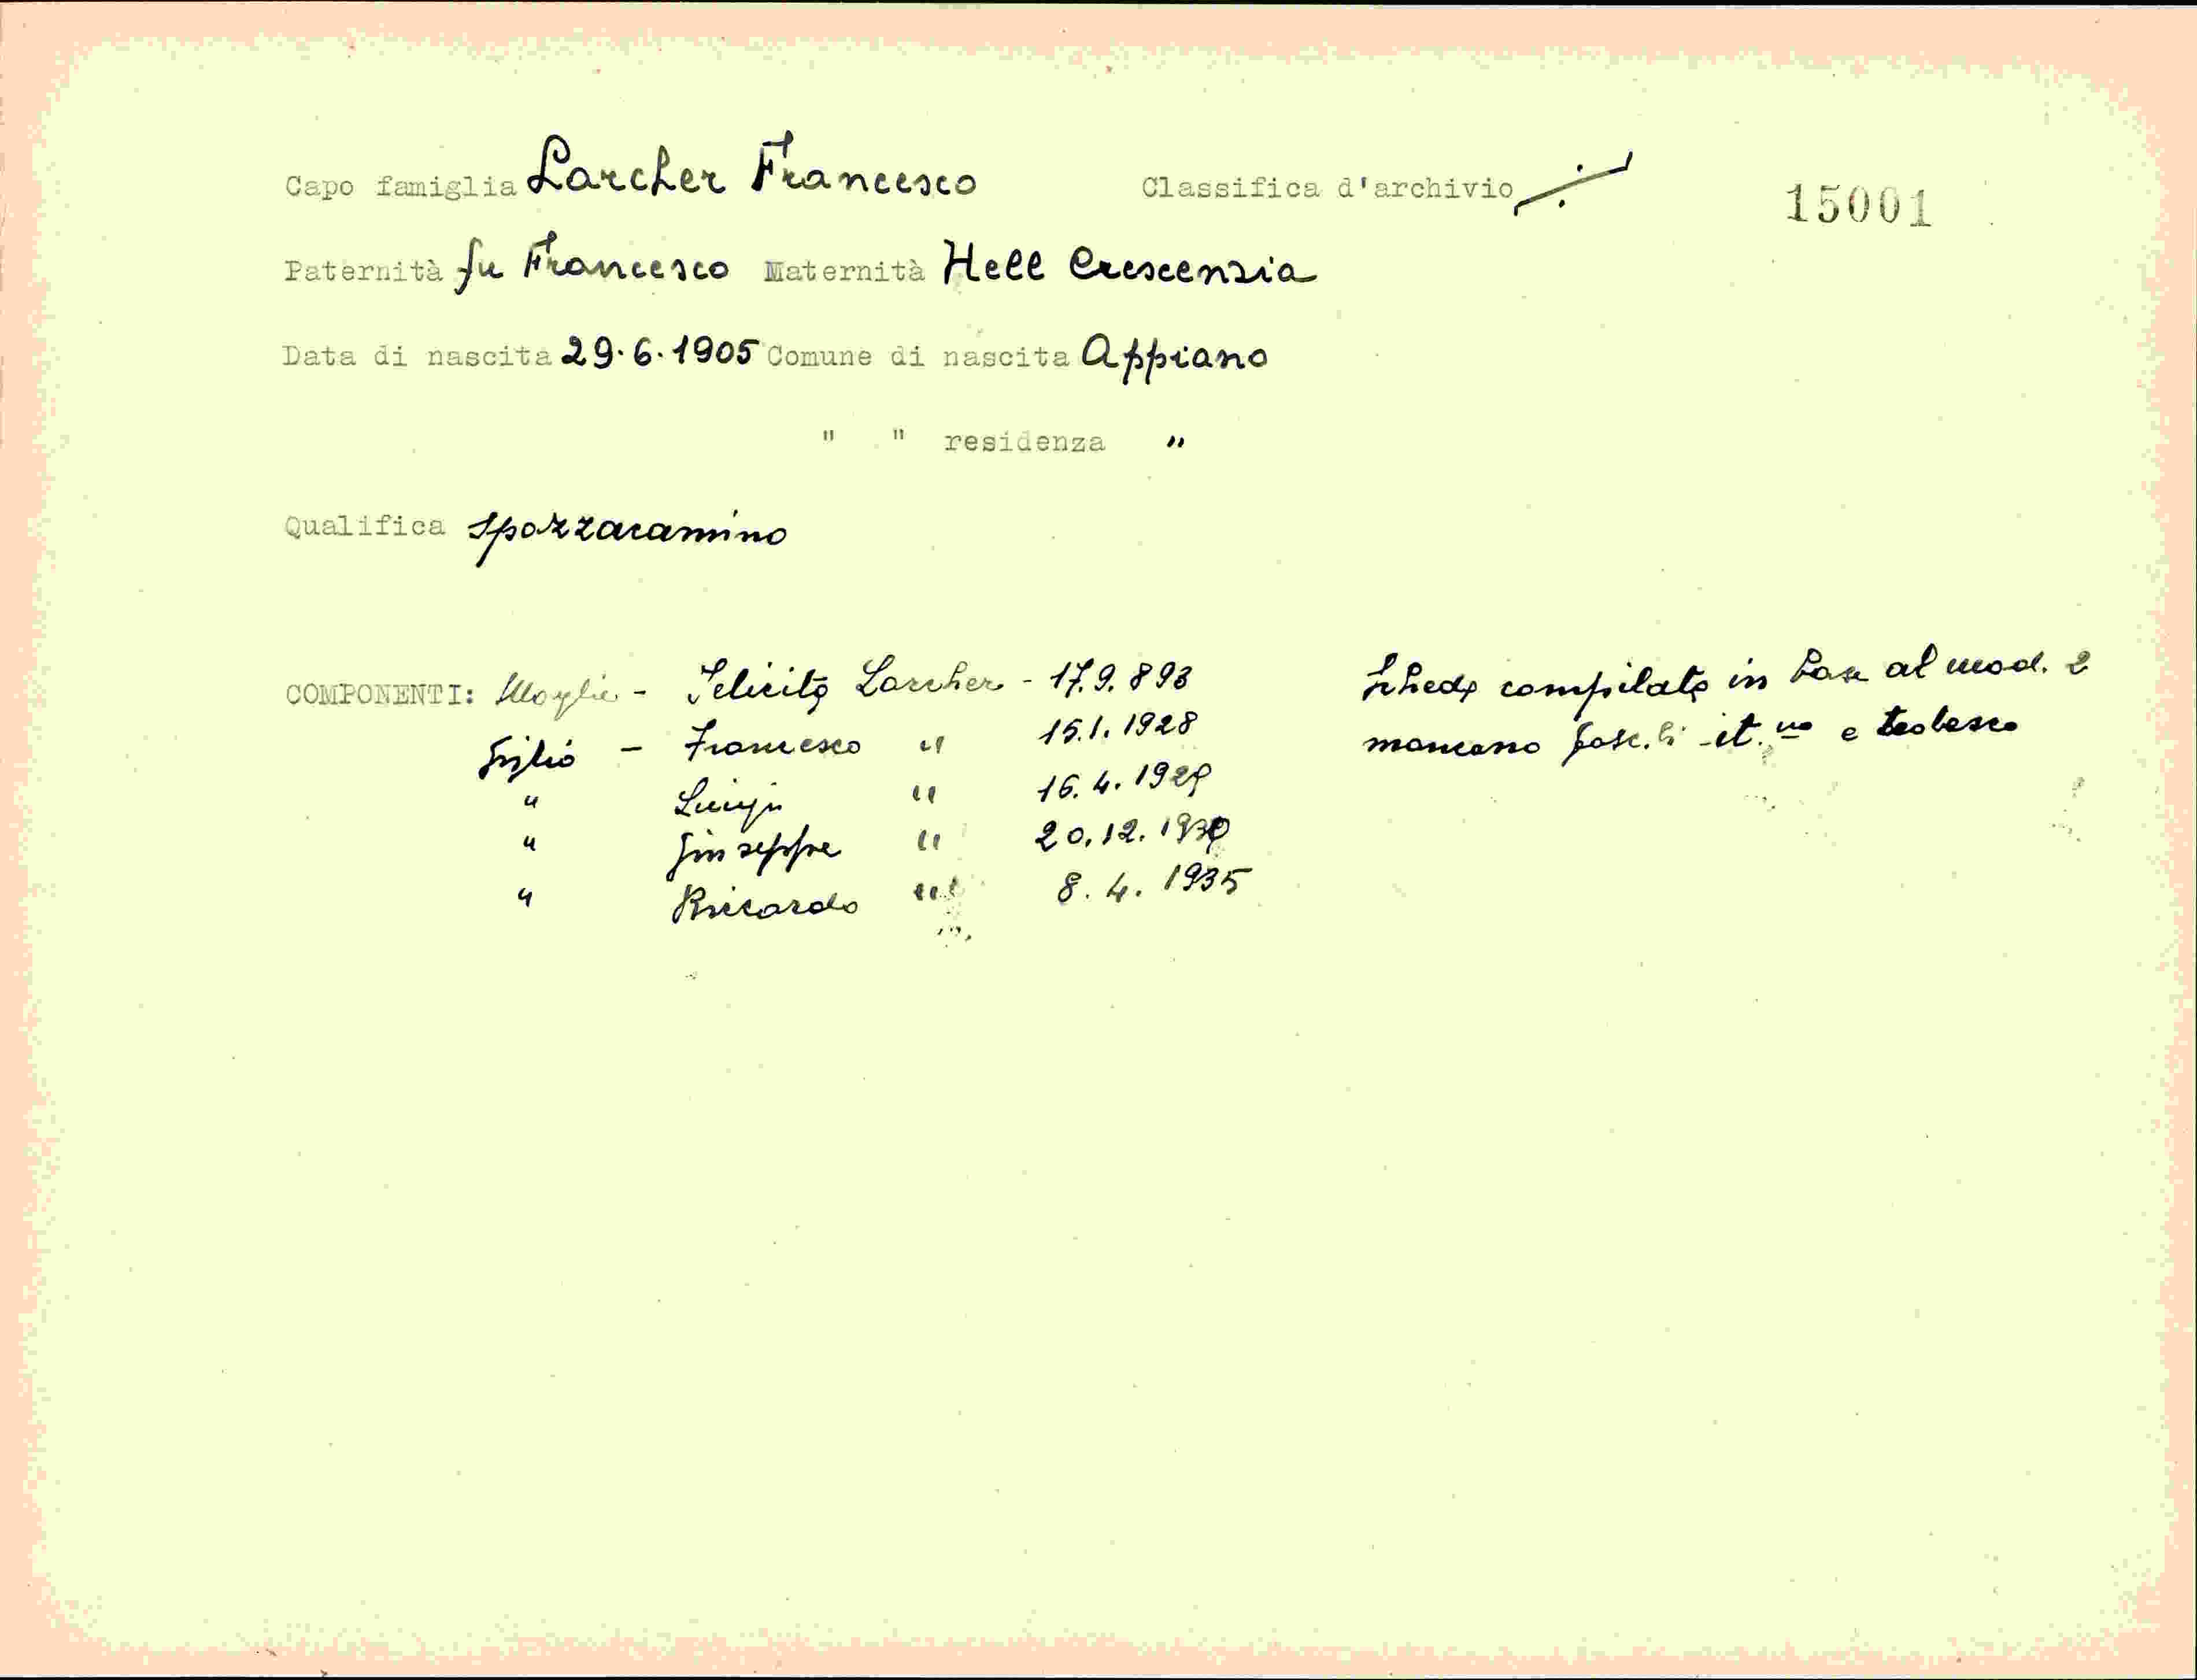 Capo famiglia Larcher Francesco Classifica d'archivio ./. 15001
Paternità fu Francesco Maternità Hell Crescenzia
Data di nascita 29.6.1905 Comune di nascita Appiano
" " residenza "
Qualifica Spazzacamino
COMPONENTI: Moglie - Felicita Larcher - 17.9.893
Figlio - Francesco " 15.1.1928
" Luigi " 16.4.1929
" Giuseppe " 20.12.1930
" Riccardo " 8.4.1935
Scheda compilata in base al mod. 2
mancano fasc.li it.no e tedesco